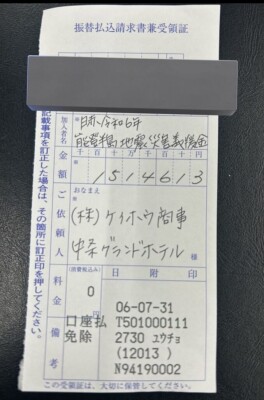 振替払込請求書兼受領証
加入者名
日赤令和6年
能登半島地震災害義援金
金額
千 百 十 万 千 百 十 円
1 5 1 4 6 1 3
ご依頼人
おなまえ
(株)ケイホウ商事
中条グランドホテル
様
料金
(消費税込み)
0
円
日附印
06-07-31
口座払 T501000111
免除 2730 ユウチョ
(12013 )
N94190002
備考
この受領証は、大切に保管してください。
記載事項を訂正した場合は、その箇所に訂正印を押してください。